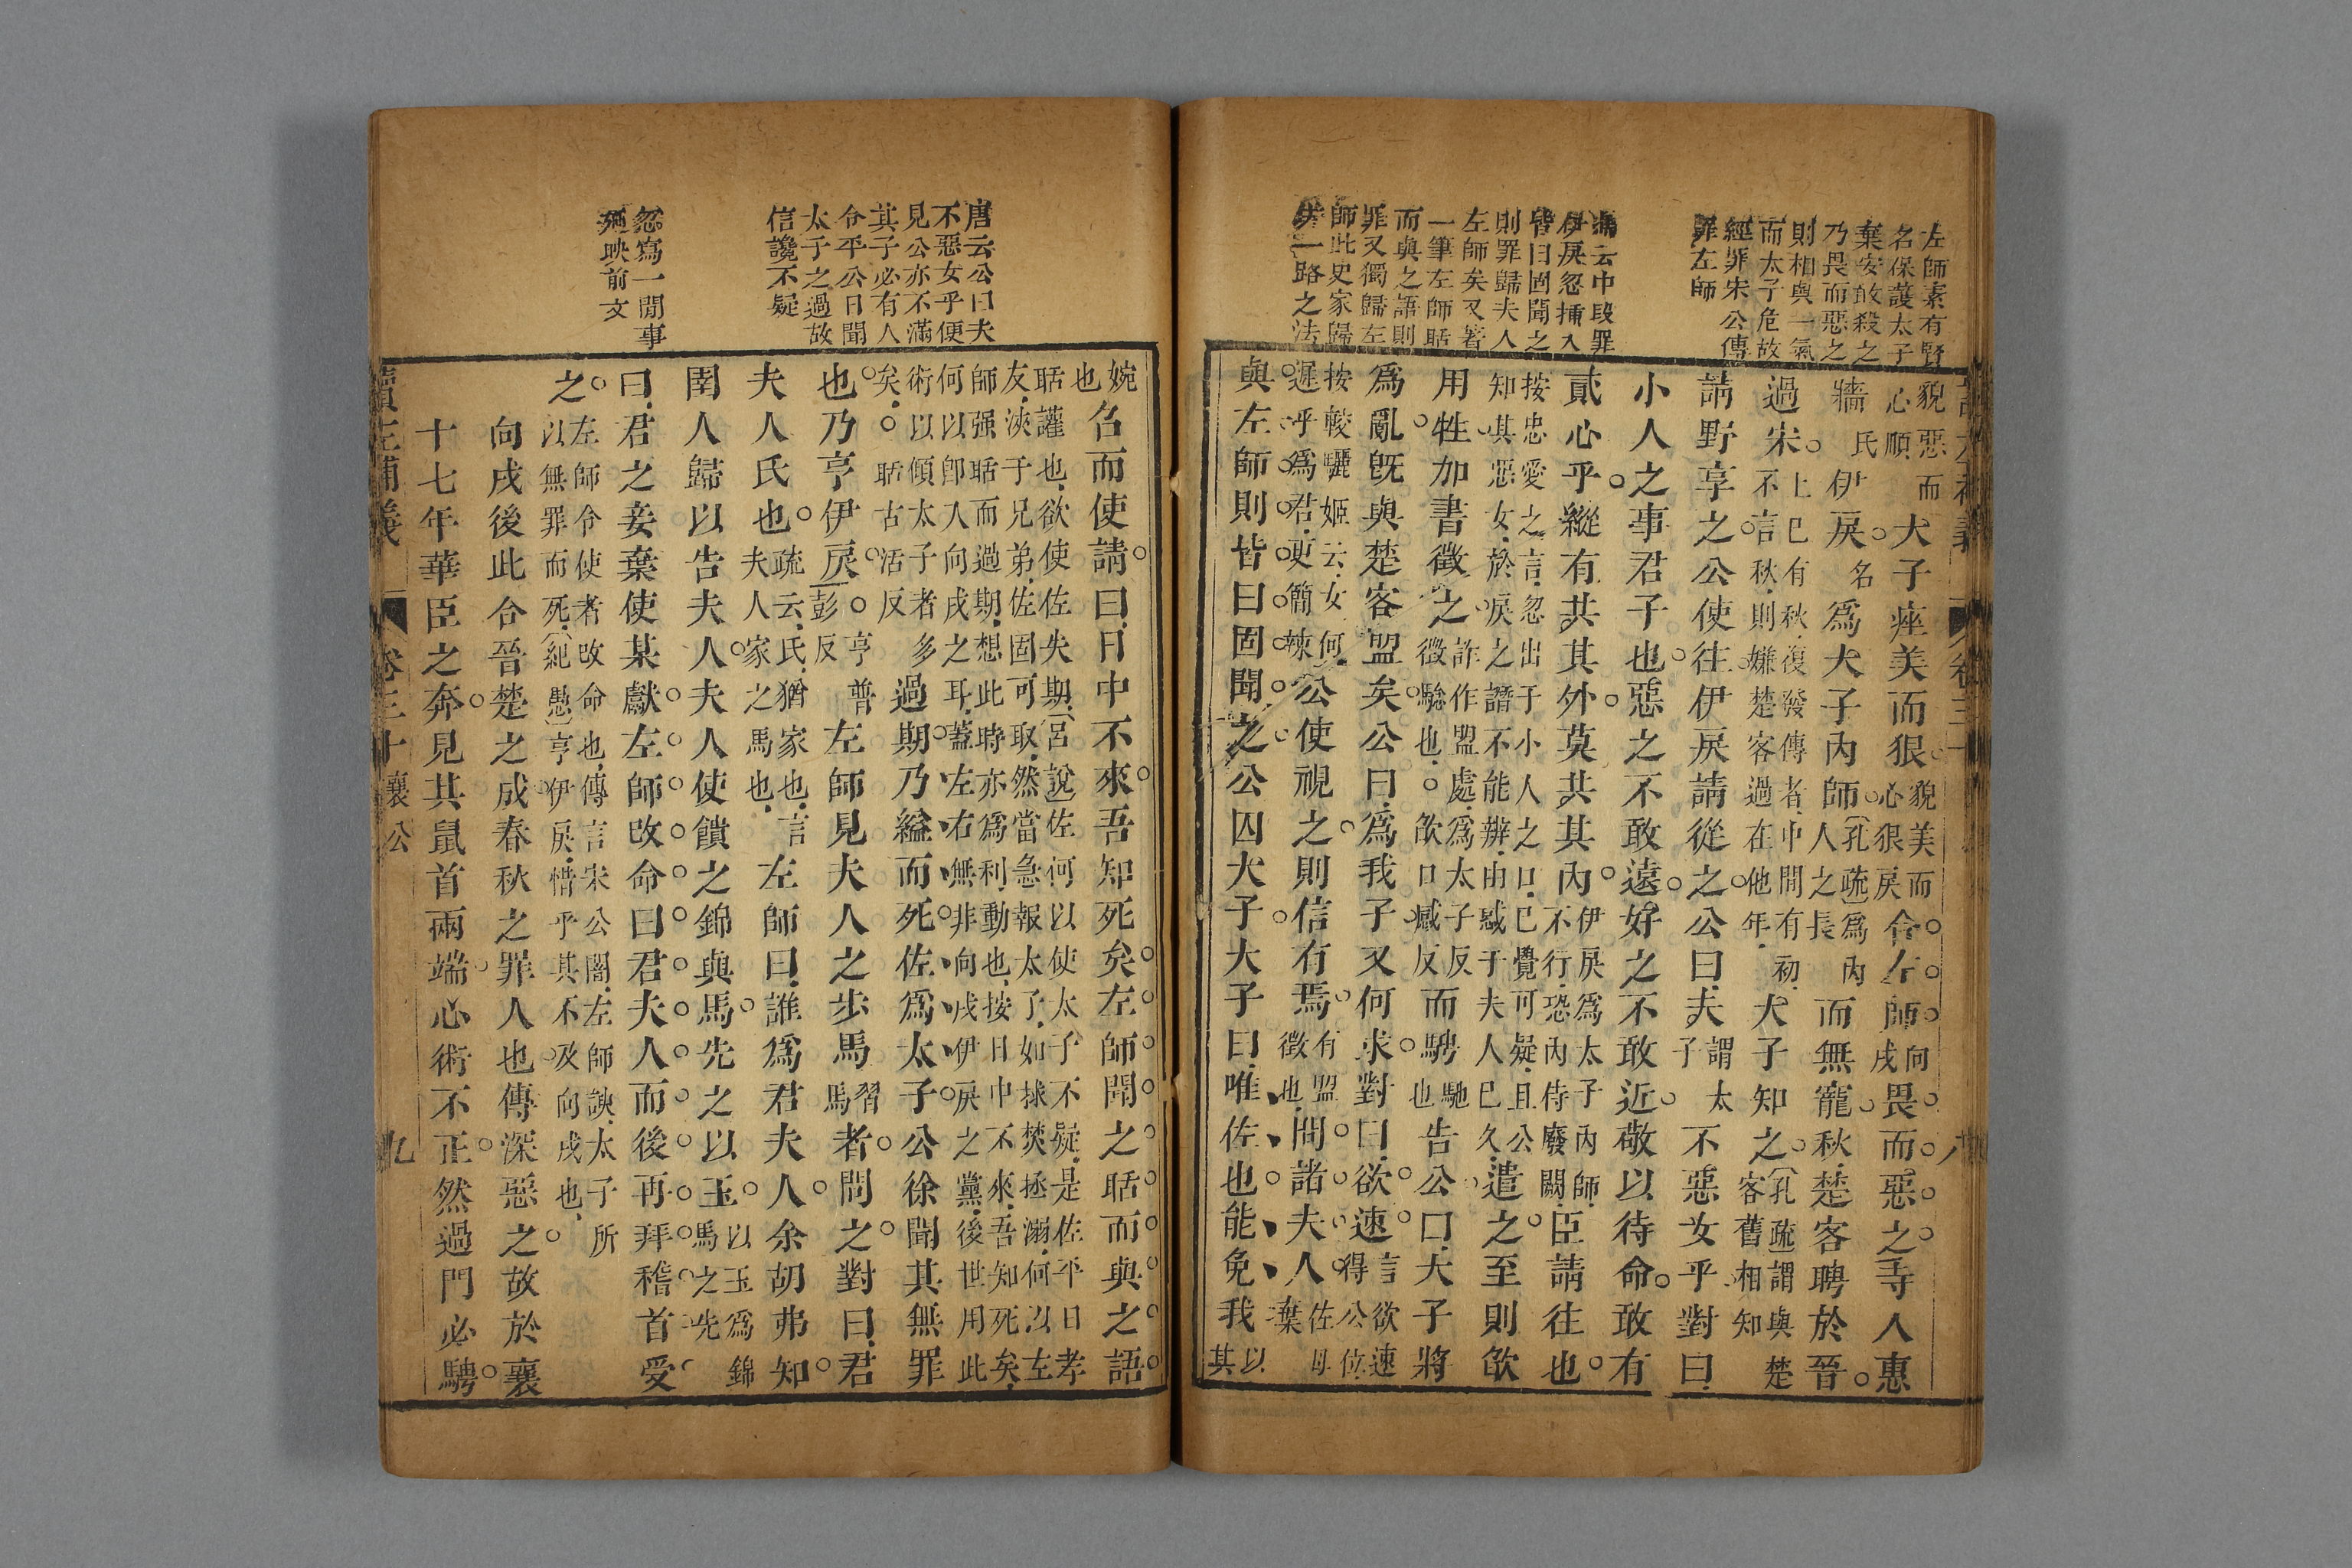 左師素有賢
名保護太子
棄安敢殺之
乃畏而惡之
則相與一氣
而太子危故
經罪宋公傳
罪左師
馮云中段罪
伊戾忽插入
皆曰固聞之
則罪歸夫人
左師矣又著
一筆左師聒
而與之語則
罪又獨歸左
師此史家歸
一路之法
貌惡而心順大子痤美而狠貌美而心狠戾合左師向戌畏而惡之寺人惠
牆氏伊戾名為大子內師孔疏為內人之長而無寵秋楚客聘於晉
過宋上已有秋復發傳者中間有初不言秋則嫌楚客過在他年大子知之孔疏謂與楚客舊相知
請野享之公使往伊戾請從之公曰夫謂太子不惡女乎對曰
小人之事君子也惡之不敢遠好之不敢近敬以待命敢有
貳心乎縱有共其外莫共其內伊戾為太子內師不行恐內侍廢闕臣請往也
按忠愛之言忽出于小人之口已覺可疑且公知其惡女於戾之譖不能辨由惑于夫人已久遣之至則欿
用牲加書徵之詐作盟處為太子反徵驗也欿口感反而騁馳也告公曰大子將
為亂既與楚客盟矣公曰為我子又何求對曰欲速言欲速得公位
按較驪姬云女何遲乎為君更簡辣公使視之則信有焉有盟徵也問諸夫人佐母棄
與左師則皆曰固聞之公囚大子大子曰唯佐也能免我以其
唐云公曰夫
不惡女乎便
見公亦不滿
其子必有人
令平公日聞
太子之過故
信讒不疑
忽寫一閒事
廻映前文
婉也召而使請曰日中不來吾知死矣左師聞之聒而與之語
聒讙也欲使佐失期呂說佐何以使太子不疑是佐平日孝
友浹于兄弟佐固可取然當急報太子如捄焚拯溺何以左
師强聒而過期想此時亦為利動也按日中不來吾知死矣
何以卽人向戌之耳蓋左右無非向戌伊戾之黨後世用此
術以傾太子者多
矣聒古活反過期乃縊而死佐為太子公徐聞其無罪
也乃亨伊戾亨普彭反左師見夫人之步馬習馬者問之對曰君
夫人氏也疏云氏猶家也言夫人家之馬也左師曰誰為君夫人余胡弗知
圉人歸以告夫人夫人使饋之錦與馬先之以玉以玉為錦馬之先
曰君之妾棄使某獻左師改命曰君夫人而後再拜稽首受
之左師令使者改命也傳言宋公闇左師諛太子所以無罪而死紀愚亨伊戾惜乎其不及向戌也
向戌後此合晉楚之成春秋之罪人也傳深惡之故於襄
十七年華臣之奔見其鼠首兩端心術不正然過門必騁
讀左補義
卷三十襄公
九